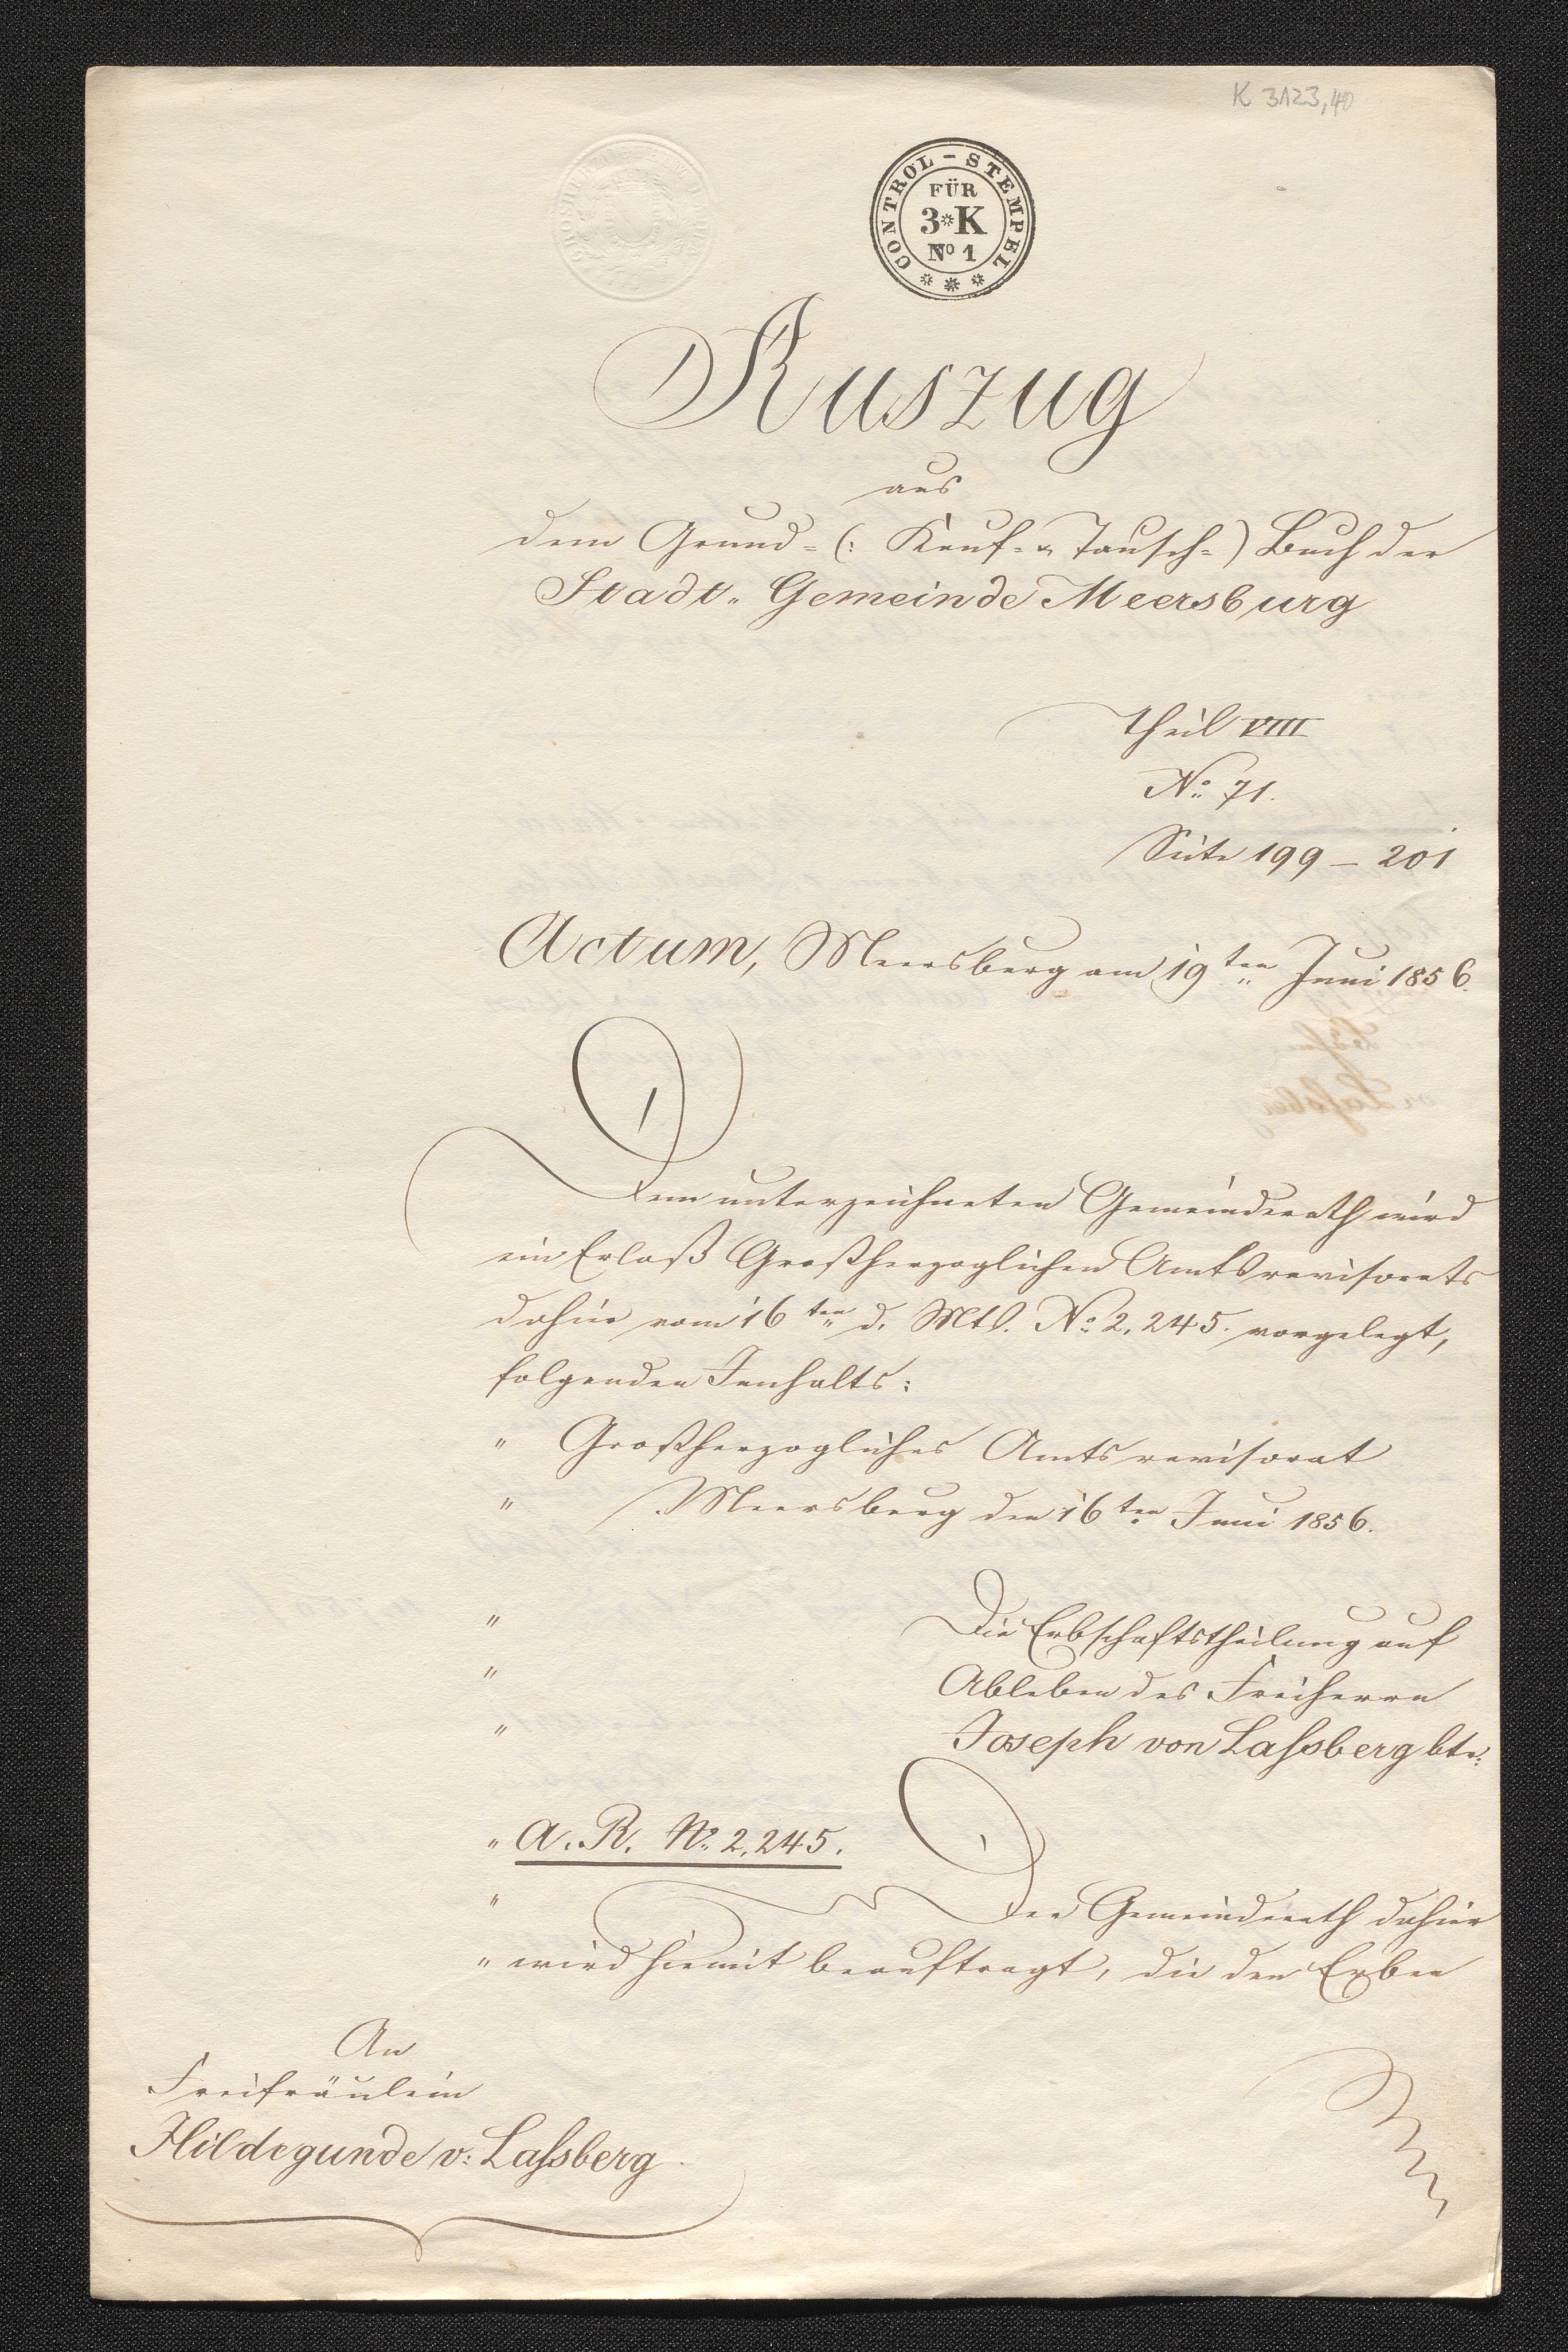 K 3123,40
CONTROL-STEMPEL
FÜR
3*K
No 1
Auszug
aus
dem Grund- (: Kauf- u. Tausch-) Buch der
Stadt-Gemeinde Meersburg
Theil VIII
No. 71.
Seite 199 - 201
Actum, Meersburg am 19ten Juni 1856.
Dem unterzeichneten Gemeinderath wird
ein Erlaß Großherzoglichen Amtsrevisorats
dahier vom 16ten d. Mts. No. 2,245. vorgelegt,
folgenden Innhalts:
" Großherzogliches Amtsrevisorat
" Meersburg den 16ten Juni 1856.
" Die Erbschaftstheilung auf
" Ableben des Freiherrn
" Joseph von Laßberg btr:
" A. R. No. 2,245.
" Der Gemeinderath dahier
" wird hiemit beauftragt, die den Erben
An
Freifräulein
Hildegunde v: Laßberg.